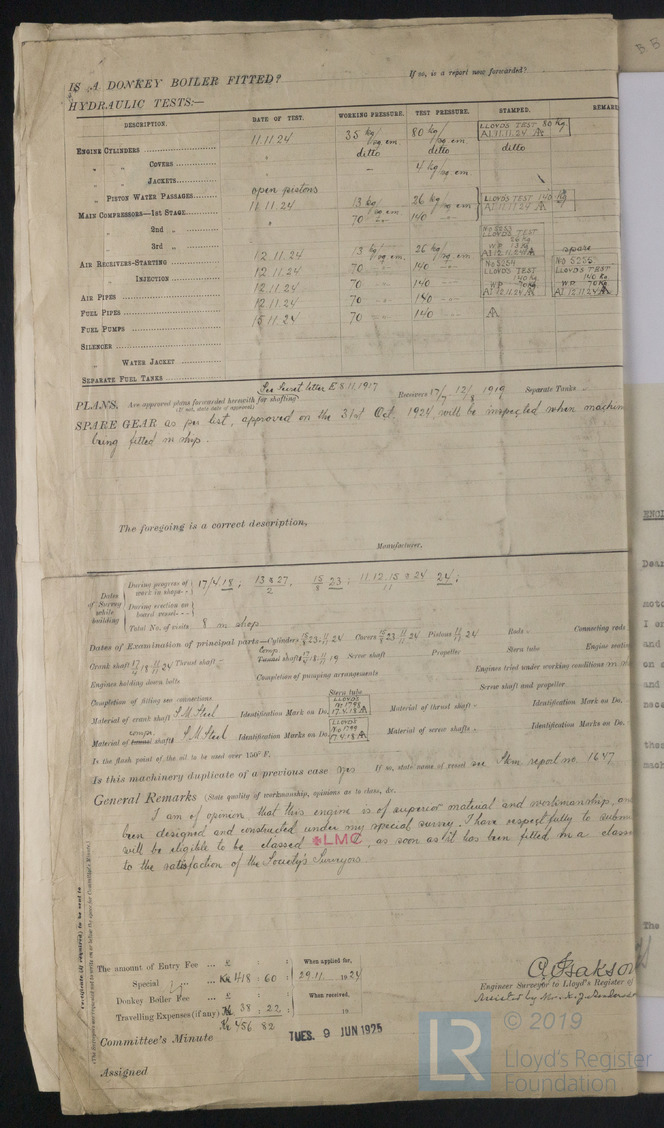 IS A DONKEY BOILER FITTED? If so, is a report now forwarded?
HYDRAULIC TESTS:—
DESCRIPTION. DATE OF TEST. WORKING PRESSURE. TEST PRESSURE. STAMPED. REMARK
ENGINE CYLINDERS 11.11.24 35 kg/sq.cm. 80 kg/sq.cm. LLOYD'S TEST 80 Kg
AI 11.11.24
" " COVERS " ditto ditto ditto
" " JACKETS - 4 kg/sq.cm.
" PISTON WATER PASSAGES open pistons
MAIN COMPRESSORS—1st STAGE 11.11.24 13 kg/sq.cm. 26 kg/sq.cm. LLOYD'S TEST 140 Kg
AI 11.11.24
" 2nd " " 70 140
" 3rd "
AIR RECEIVERS-STARTING 12.11.24 13 kg/sq.cm. 26 kg/sq.cm. No 5233 LLOYDS TEST 26 Kg WP 13 Kg AI 12.11.24 spare
" INJECTION 12.11.24 70 140 No 5234 LLOYDS TEST 140 Kg WP 70 Kg AI 12.11.24 No 5235 LLOYDS TEST 140 Kg WP 70 Kg AI 12.11.24
AIR PIPES 12.11.24 70 140
FUEL PIPES 12.11.24 70 140
FUEL PUMPS 15.11.24 70 140
SILENCER
" WATER JACKET
SEPARATE FUEL TANKS
See Secret. letter E 8.11.1917
PLANS. Are approved plans forwarded herewith for shafting Receivers 17/7 12/8 1919 Separate Tanks -
(If not, state date of approval)
SPARE GEAR as per list, approved on the 31st Oct. 1924, will be inspected when machin
being fitted in ship.
The foregoing is a correct description,
Manufacturer.
Dates of Survey while building
During progress of work in shops-- 17/4 18; 13 & 27/2, 15/8 23; 11.12.15 & 24/11 24;
During erection on board vessel---
Total No. of visits 8 in shop
Dates of Examination of principal parts—Cylinders 15/8 23, 11/11 24 Covers 15/8 23, 11/11 24 Pistons 11/11 24 Rods - Connecting rods
Crank shaft 17/4 18 11/11 24 Thrust shaft - Comp. Tunnel shafts 17/4 18 11/11 19 Screw shaft Propeller Stern tube Engine seatin
Engines holding down bolts Completion of pumping arrangements Engines tried under working conditions
Completion of fitting sea connections Stern tube Screw shaft and propeller
Material of crank shaft S.M. Steel Identification Mark on Do. LLOYDS No 1798 17.4.18 Material of thrust shaft - Identification Mark on Do.
Material of tunnel shafts comp. S.M Steel Identification Marks on Do. LLOYDS No 1799 17.4.18 Material of screw shafts - Identification Marks on Do.
Is the flash point of the oil to be used over 150° F.
Is this machinery duplicate of a previous case yes If so, state name of vessel see Stm report no. 1647
General Remarks (State quality of workmanship, opinions as to class, &c.
I am of opinion, that this engine is of superior material and workmanship, an
been designed and constructed under my special survey. I have respectfully to submi
will be eligible to be classed ✠LMC, as soon as it has been fitted in a classe
to the satisfaction of the Society's Surveyors
Certificate (if required) to be sent to
(The Surveyors are requested not to write on or below the space for Committee's Minute.)
The amount of Entry Fee ... £ : : When applied for,
Special " ... Kr 418 : 60 : 29.11. 1924
Donkey Boiler Fee ... £ : : When received,
Travelling Expenses (if any) Kr 38 : 22 : 19
Kr 456 82
Engineer Surveyor to Lloyd's Register of
Committee's Minute TUES. 9 JUN 1925
Assigned
ENGI
Dear
note
I or
and
on c
and
nece
thes
mach
The
LR © 2019
Lloyd's Register
Foundation